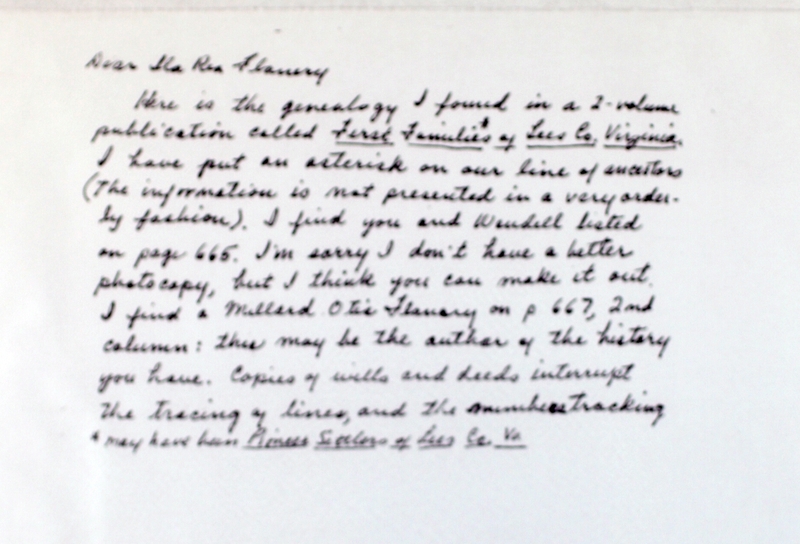 Dear Ila Rea Flanery
Here is the genealogy I found in a 2-volume
publication called First Families* of Lees Co, Virginia.
I have put an asterisk on our line of ancestors
(The information is not presented in a very order-
ly fashion). I find you and Wendell listed
on page 665. I'm sorry I don't have a better
photocopy, but I think you can make it out.
I find a Millard Otis Flanary on p 667, 2nd
column: this may be the author of the history
you have. Copies of wills and deeds interrupt
the tracing of lines, and the numbers tracking
* may have been Pioneer Settlers of Lees Co, Va